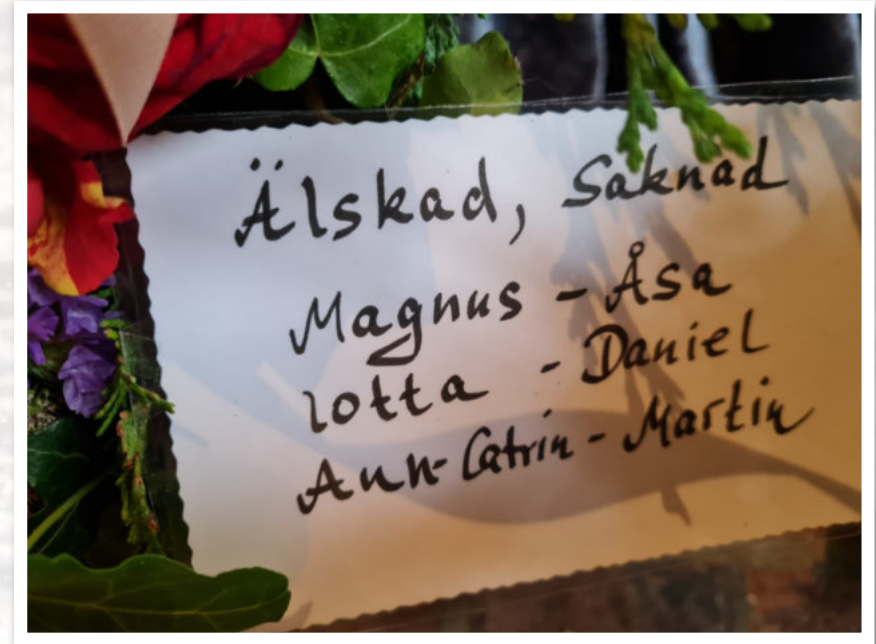 Älskad, Saknad
Magnus - Åsa
Lotta - Daniel
Ann-Catrin - Martin